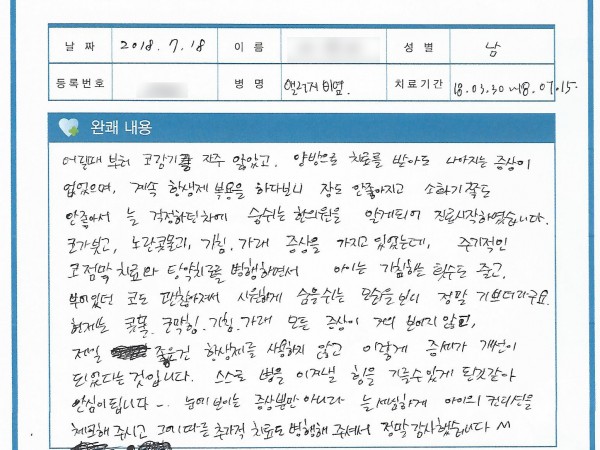 날 짜 2018. 7. 18 이 름 성 별 남
등록번호 병 명 알러지 비염. 치료기간 18.03.30~18.07.15.
완쾌 내용
어릴때 부터 코감기를 자주 앓았고. 양방으로 치료를 받아도 나아지는 증상이
없었으며, 계속 항생제 복용을 하다보니 장도 안좋아지고 소화기쪽도
안좋아서 늘 걱정하던차에 숨쉬는한의원을 알게되어 진료시작하였습니다.
코가붓고, 노란콧물과, 기침. 가래 증상을 가지고 있었는데, 주기적인
코점막 치료와 탕약치료를 병행하면서 아이는 기침하는 횟수도 줄고,
부어있던 코도 괜찮아져서 시원하게 숨을쉬는 모습을보니 정말 기쁘더라구요.
현재는 콧물. 코막힘. 기침. 가래 모든 증상이 거의 보이지 않고,
제일 좋은건 항생제를 사용하지 않고 이렇게 증세가 개선이
되었다는 것입니다. 스스로 병을 이겨낼 힘을 기를수있게 된것같아
안심이됩니다 ~. 눈에 보이는 증상뿐만 아니라 늘세심하게 아이의 컨디션을
체크해 주시고 그에 따른 추가적 치료도 병행해 주셔서 정말 감사했습니다 ^^